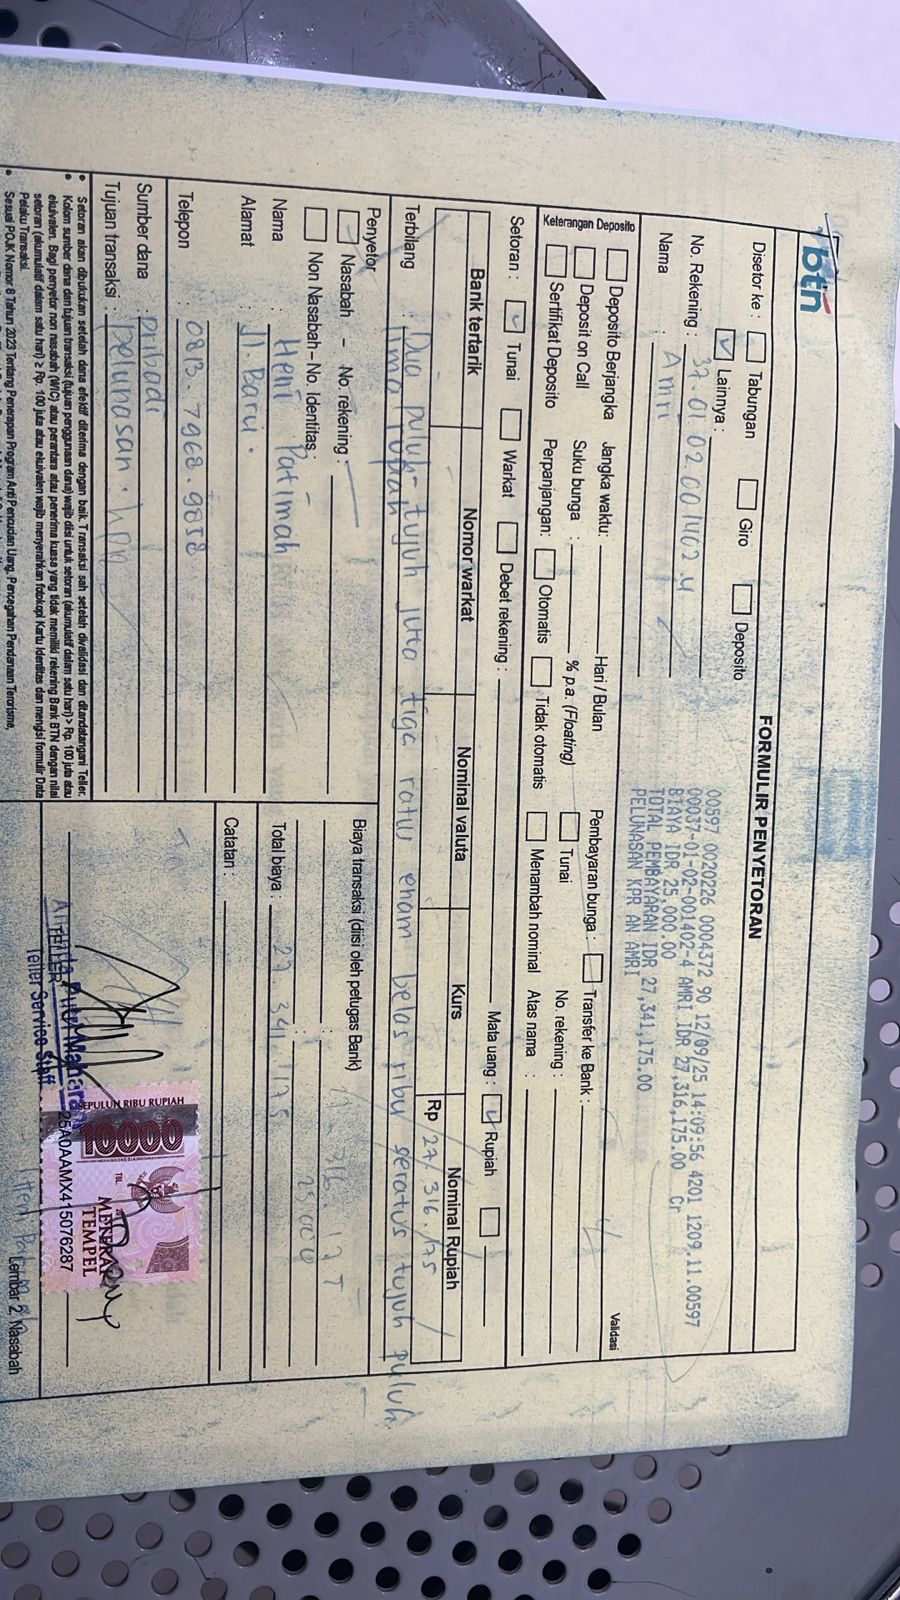 btn
FORMULIR PENYETORAN
Disetor ke : Tabungan Giro Deposito
Lainnya :
No. Rekening : 37.01.02.001402.4
Nama : Amri
00597 0020226 0004372 90 12/09/25 14:09:56 4201 1209.11.00597
00037-01-02-001402-4 AMRI IDR 27,316,175.00 Cr
BIAYA IDR 25,000.00
TOTAL PEMBAYARAN IDR 27,341,175.00
PELUNASAN KPR AN AMRI
Validasi
Keterangan Deposito
Deposito Berjangka Jangka waktu: Hari / Bulan Pembayaran bunga : Transfer ke Bank :
Deposit on Call Suku bunga : % p.a. (Floating) Tunai No. rekening :
Sertifikat Deposito Perpanjangan: Otomatis Tidak otomatis Menambah nominal Atas nama :
Setoran : Tunai Warkat Debet rekening : Mata uang : Rupiah
Bank tertarik Nomor warkat Nominal valuta Kurs Nominal Rupiah
Rp 27.316.175
Terbilang : Dua puluh tujuh juta tiga ratus enam belas ribu seratus tujuh puluh
lima rupiah
Penyetor
Nasabah – No. rekening :
Non Nasabah – No. Identitas :
Nama : Heni Patimah
Alamat : Jl. Barui.
Telepon : 0813.7968.9858
Sumber dana : pribadi
Tujuan transaksi : pelunasan. kpr
Biaya transaksi (diisi oleh petugas Bank)
25.000
Total biaya : 27.341.175
Catatan :
• Setoran akan dibukukan setelah dana efektif diterima dengan baik. Transaksi sah setelah divalidasi dan ditandatangani Teller.
• Kolom sumber dana dan tujuan transaksi (tujuan penggunaan dana) wajib diisi untuk setoran (akumulatif dalam satu hari) > Rp. 100 juta atau
ekuivalen. Bagi penyetor non nasabah (WIC) atau perantara atau penerima kuasa yang tidak memiliki rekening Bank BTN dengan nilai
setoran (akumulatif dalam satu hari) ≥ Rp. 100 juta atau ekuivalen wajib menyerahkan fotokopi Kartu Identitas dan mengisi formulir Data
Pelaku Transaksi.
• Sesuai POJK Nomor 8 Tahun 2023 Tentang Penerapan Program Anti Pencucian Uang, Pencegahan Pendanaan Terorisme,
TELLER
Teller Service Staff
SEPULUH RIBU RUPIAH
10000
TGL.
METERAI
TEMPEL
25A0AAMX415076287
Lembar 2: Nasabah